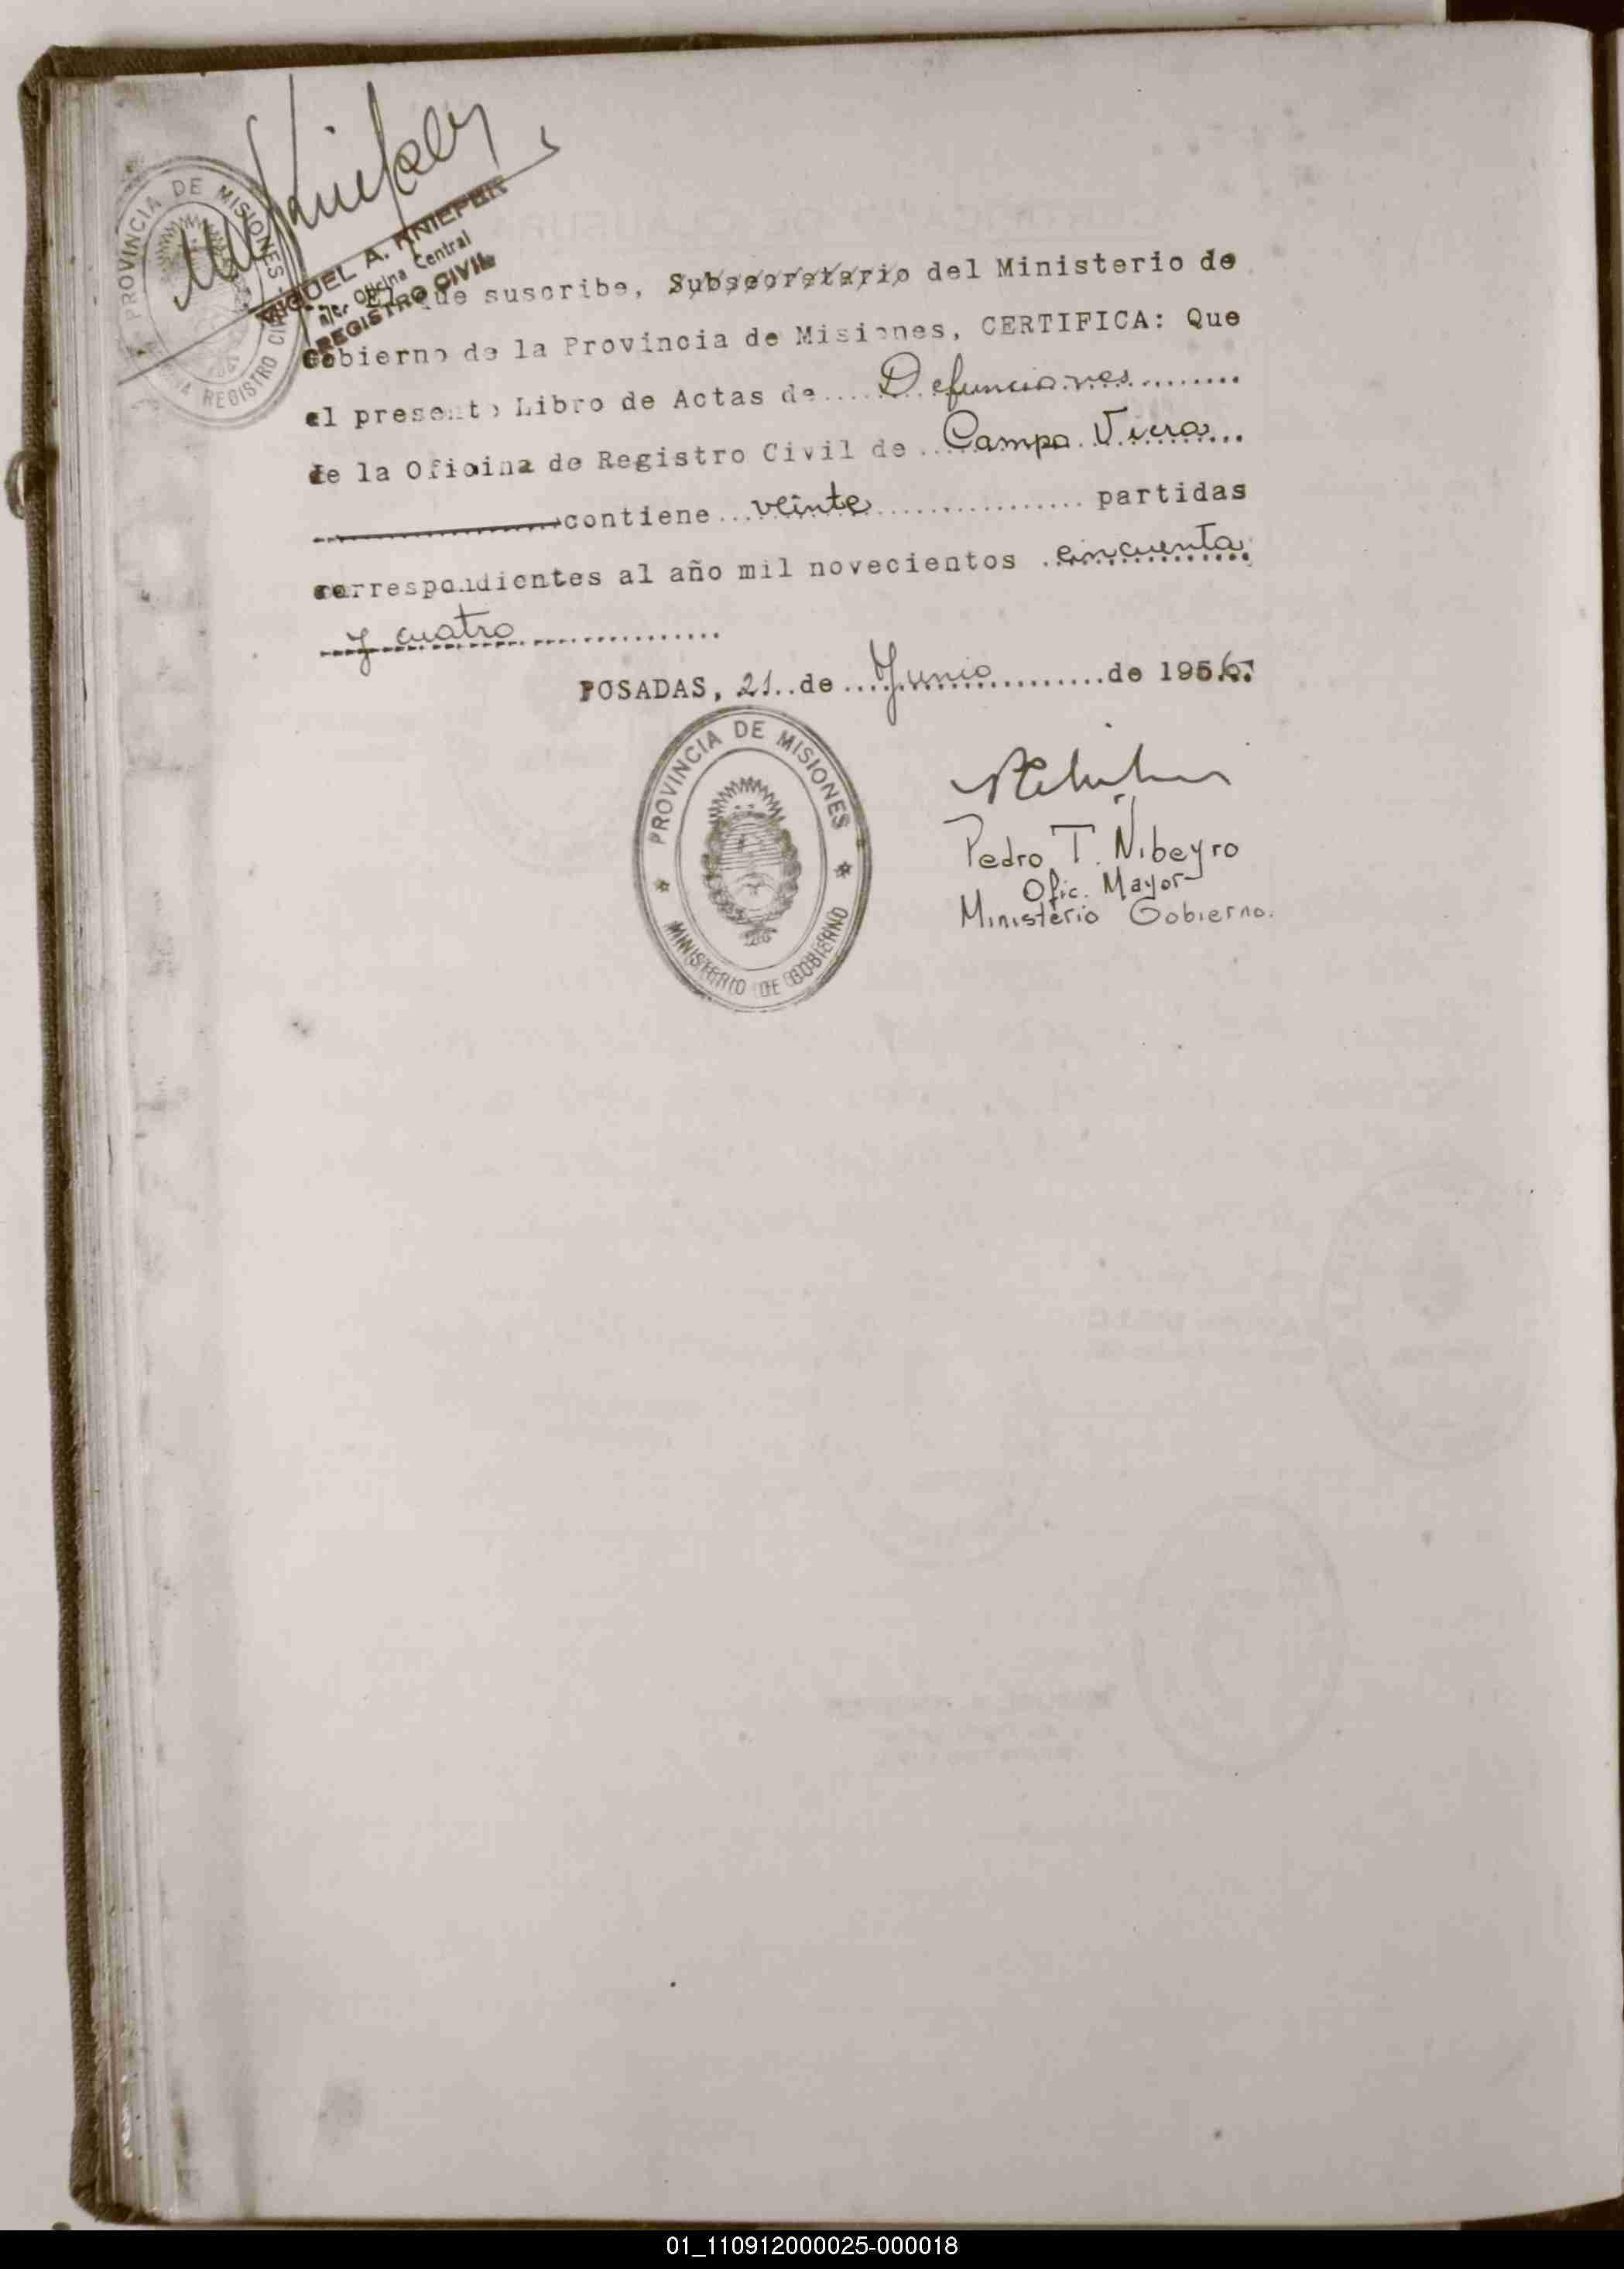 PROVINCIA DE MISIONES
REGISTRO CIVIL
MIGUEL A. KNIEPER
Oficina Central
REGISTRO CIVIL
El que suscribe, Subsecretario del Ministerio de
Gobierno de la Provincia de Misiones, CERTIFICA: Que
el presente Libro de Actas de .... Defunciones ........
de la Oficina de Registro Civil de ... Campo Viera ...
contiene ... veinte ................ partidas
correspondientes al año mil novecientos . cincuenta
y cuatro ................
POSADAS, 21.. de ... Junio ........ de 1956.
PROVINCIA DE MISIONES
MINISTERIO DE GOBIERNO
Pedro T. Nibeyro
Ofic. Mayor
Ministerio Gobierno.
01_110912000025-000018